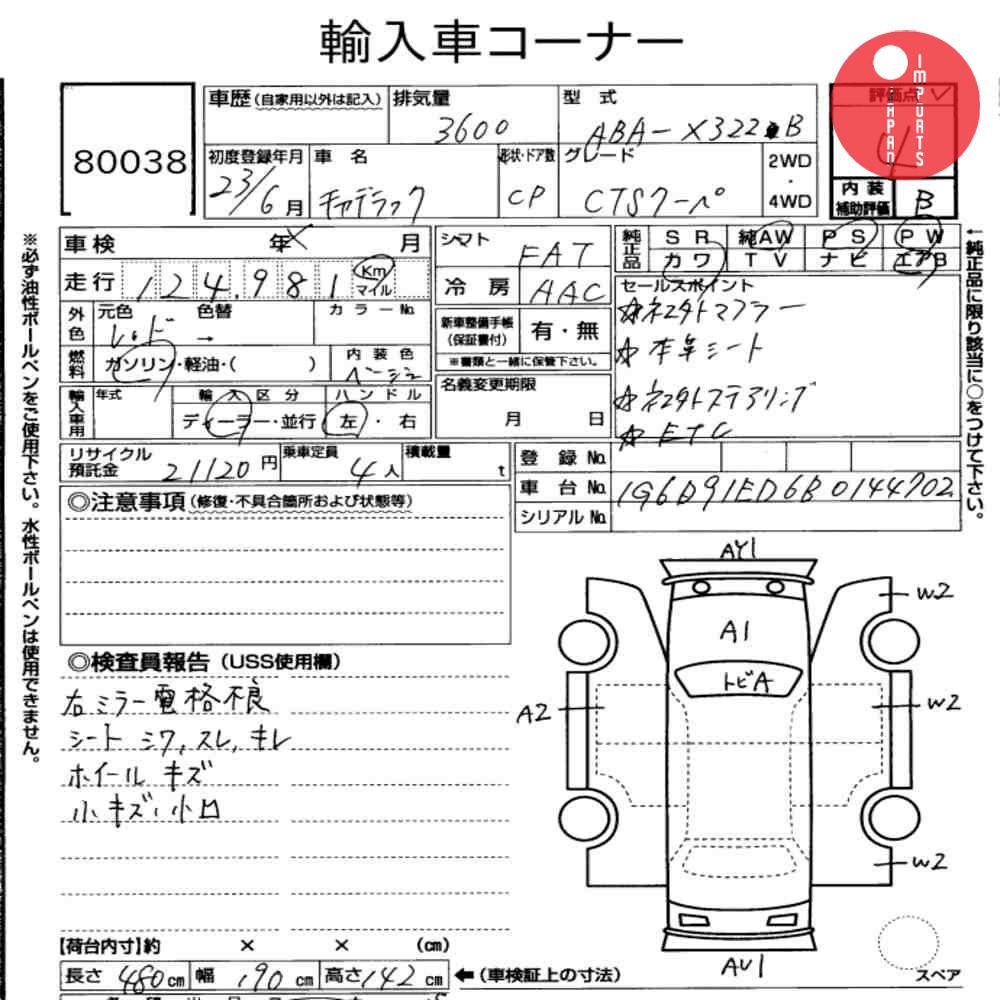 輸入車コーナー
JAPAN IMPURTS
80038
車歴 (自家用以外は記入) 排気量 型式 評価点
3600 ABA-X322 B 4
初度登録年月 車名 形状・ドア数 グレード 2WD・4WD 内装補助評価
23/6月 キャデラック CP CTSクーペ B
車検 年 月 シフト FAT
純正品 SR 純AW PS PW
カワ TV ナビ エアB
走行 124,981 Km マイル 冷房 AAC
セールスポイント
☆社外マフラー
☆本革シート
☆社外ステアリング
☆ETC
外色 元色 色替 カラーNo.
レッド →
新車整備手帳(保証書付) 有・無
※書類と一緒に保管下さい。
燃料 ガソリン・軽油・( ) 内装色 ベージュ
名義変更期限
月 日
輸入車用 年式 輸入区分 ハンドル
ディーラー・並行 左・右
リサイクル預託金 21120円 乗車定員 4人 積載量 t
登録No.
車台No. 1G6D91ED6B0144702
シリアルNo.
◎注意事項 (修復・不具合箇所および状態等)
◎検査員報告 (USS使用欄)
右ミラー電格不良
シート シワ,スレ,キレ
ホイール キズ
小キズ,小凹
AY1
A1
トビA
A2
W2
W2
W2
AU1
スペア
【荷台内寸】約 × × (cm)
長さ 480cm 幅 190cm 高さ 142cm ←(車検証上の寸法)
※必ず油性ボールペンをご使用下さい。水性ボールペンは使用できません。
←純正品に限り該当に○をつけて下さい。